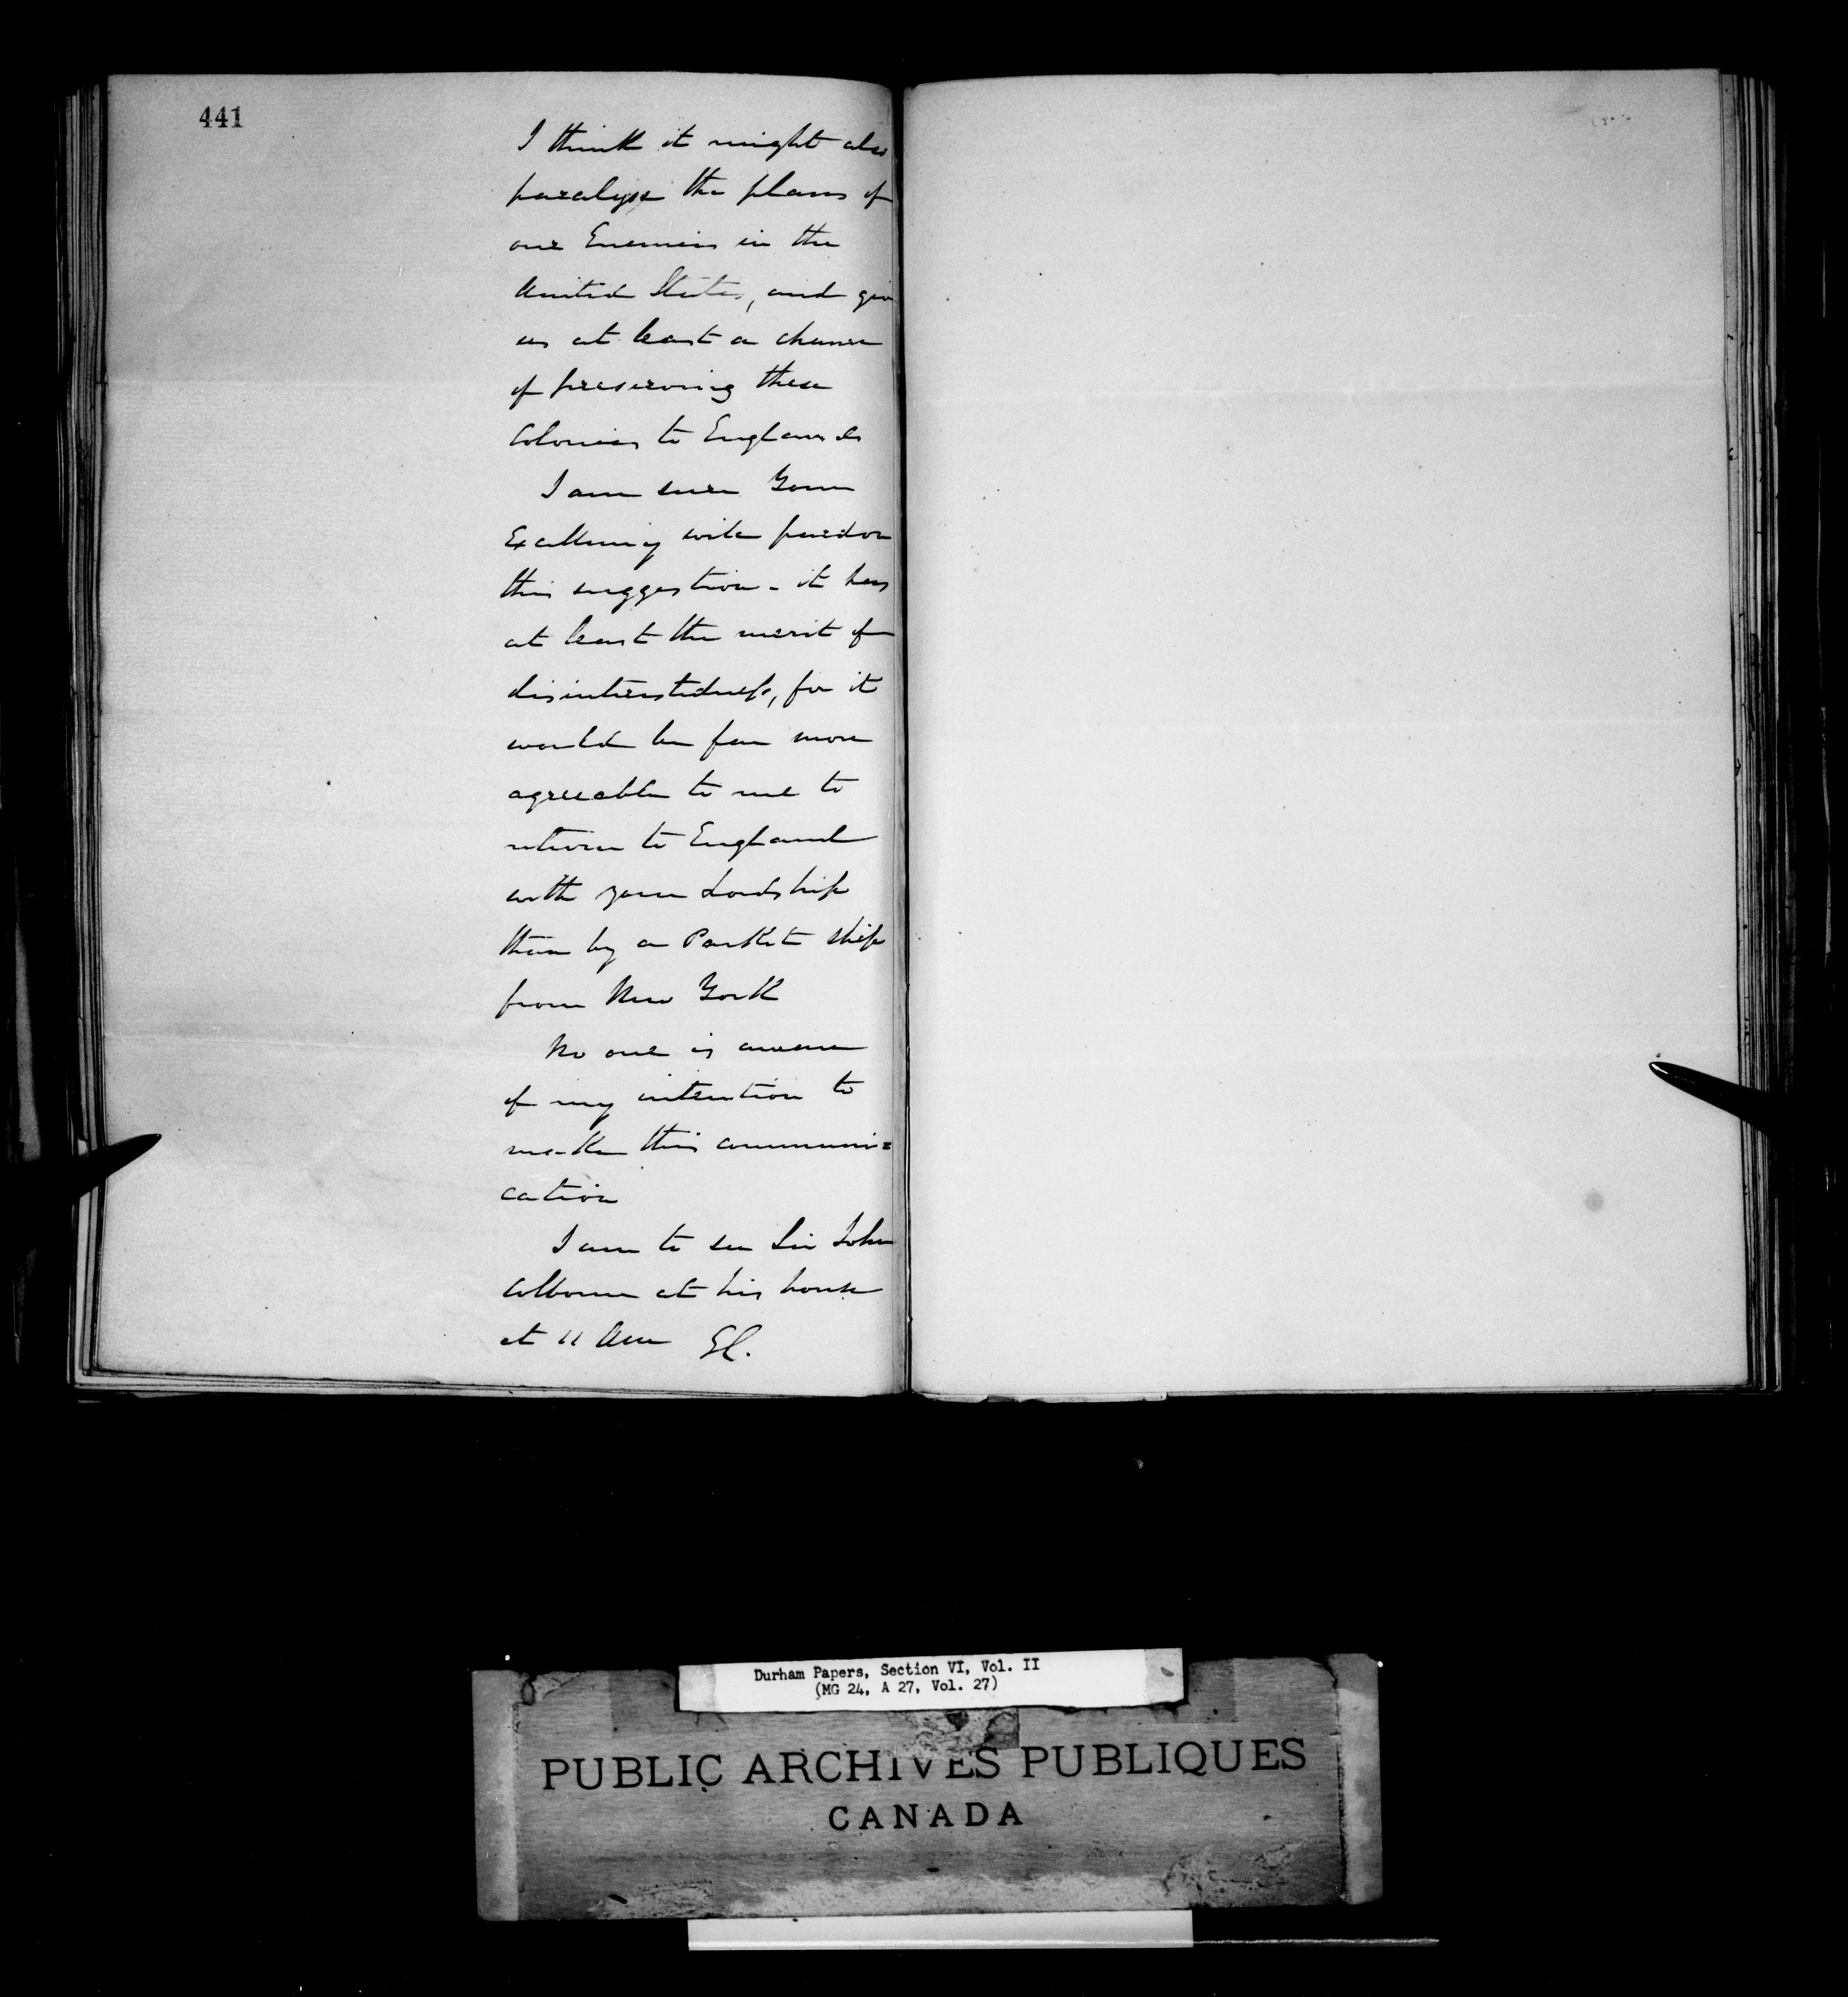 441
I think it might also
paralyse the plans of
our Enemies in the
United States, and give
us at least a chance
of preserving these
Colonies to England
I am sure Your
Excellency will pardon
this suggestion - it has
at least the merit of
disinterestedness, for it
would be far more
agreeable to me to
return to England
with your Lordship
than by a Packet Ship
from New York
No one is aware
of my intention to
make this communi=
cation
I am to see Sir John
Colborne at his house
at 11 Am
Durham Papers, Section VI, Vol. II
(MG 24, A 27, Vol. 27)
PUBLIC ARCHIVES PUBLIQUES
CANADA